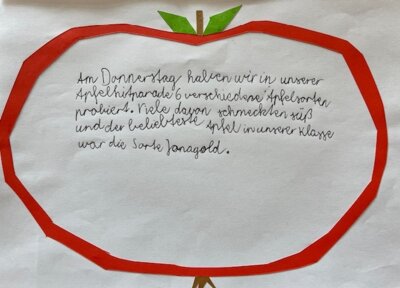 Am Donnerstag haben wir in unserer
Apfelhitparade 6 verschiedene Apfelsorten
probiert. Viele davon schmeckten süß
und der beliebteste Apfel in unserer Klasse
war die Sorte Jonagold.